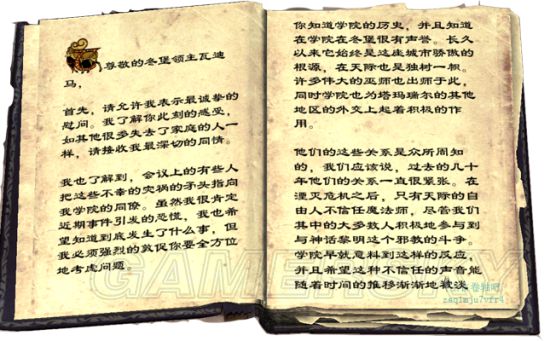 尊敬的冬堡领主瓦迪
马,
首先, 请允许我表示最诚挚的
慰问。我了解你此刻的感受,
如其他很多失去了家庭的人一
样, 请接收我最深切的同情。
我也了解到, 会议上的有些人
把这些不幸的灾祸的矛头指向
我学院的同僚。虽然我很肯定
近期事件引发的恐慌, 我也希
望知道到底发生了什么事, 但
我必须强烈的敦促你要全方位
地考虑问题。
你知道学院的历史, 并且知道
在学院在冬堡很有声誉。长久
以来它始终是这座城市骄傲的
根源, 在天际也是独树一帜。
许多伟大的巫师也出师于此,
同时学院也为塔玛瑞尔的其他
地区的外交上起着积极的作
用。
他们的这些关系是众所周知
的, 我们应该说, 过去的几十
年他们的关系一直很紧张。在
湮灭危机之后, 只有天际的自
由人不信任魔法师, 尽管我们
其中的大多数人积极地参与到
与神话黎明这个邪教的斗争。
学院早就意料到这样的反应,
并且希望这种不信任的声音能
随着时间的推移渐渐地被淡
GAMERSKY
卷轴吧
zaq1mju7vfr4